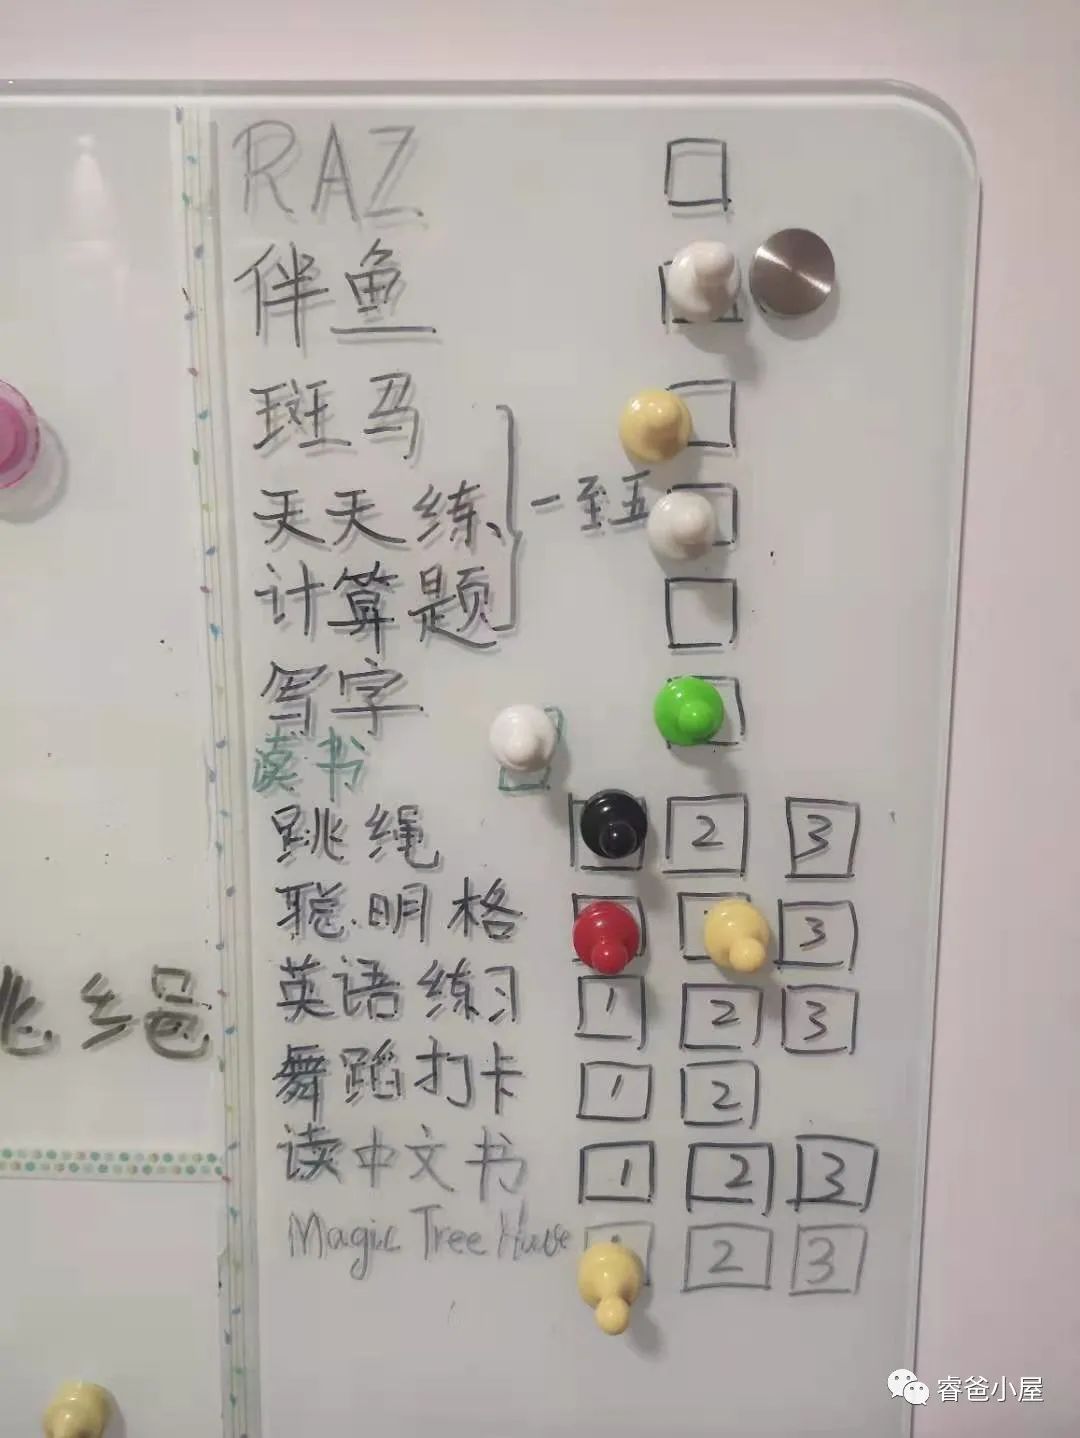 RAZ
伴鱼
斑马
天天练、 一至五
计算题
写字
读书
跳绳 2 3
聪明格 3
英语练习 1 2 3
舞蹈打卡 1 2
读中文书 1 2 3
Magic Tree House 2 3
跳绳
睿爸小屋